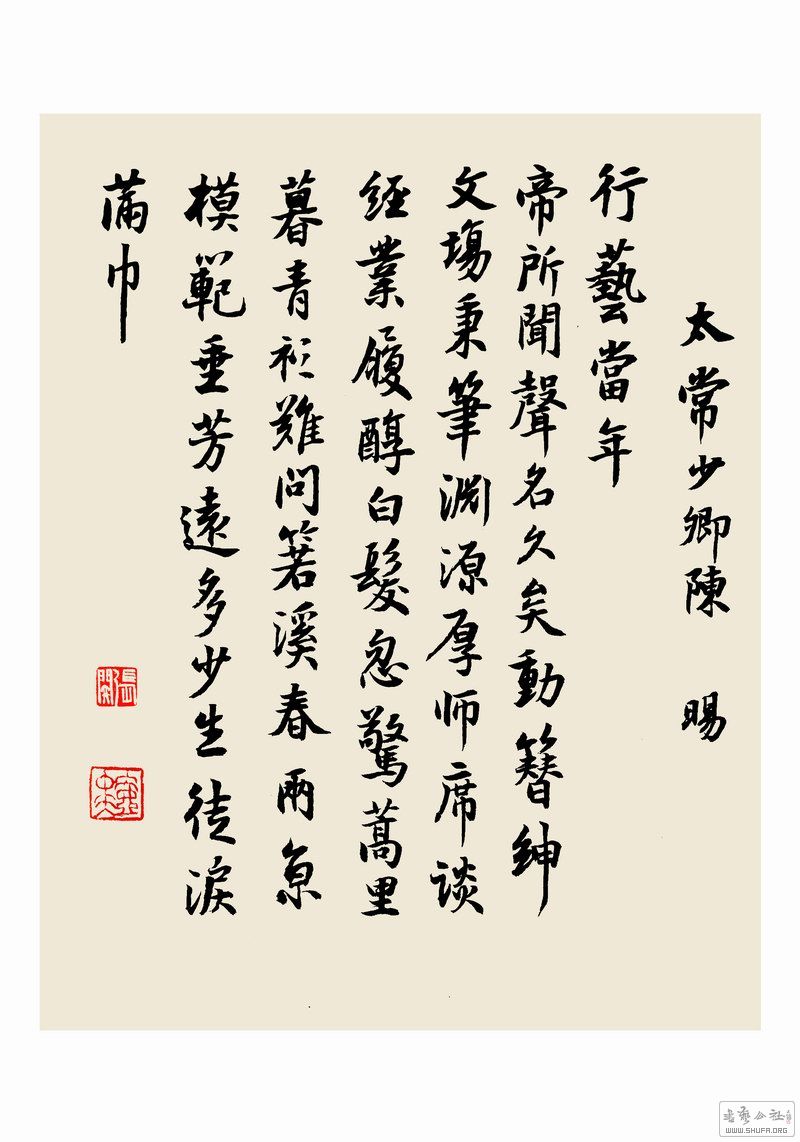 太常少卿陳 暘
行藝當年
帝所聞聲名久矣動簪紳
文塲秉筆淵源厚师席谈
經業履醇白髮忽驚蒿里
暮青衫難問箬溪春兩亰
模範垂芳遠多少生徒淚
滿巾
書藝公社
WWW.SHUFA.ORG